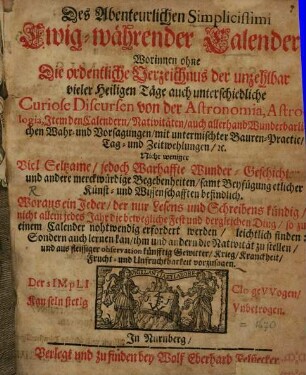 Des Abenteurlichen Simplicissimi
Ewig-währender Calender
Worinnen ohne
Die ordentliche Verzeichnus der unzehlbar
vieler Heiligen Täge auch unterschiedliche
Curiose Discursen von der Astronomia, Astro-
logia, Item den Calendern, Nativitäten, auch allerhand Wunderbarli-
chen Wahr- und Vorsagungen, mit untermischter Bauren-Practic,
Tag- und Zeitwehlungen, ꝛc.
Nicht weniger
Viel Seltzame, jedoch Warhaffte Wunder-Geschicht
und andere merckwürdige Begebenheiten, samt Beyfügung etlicher
Künst- und Wissenschafften befindlich.
Woraus ein Jeder, der nur Lesens und Schreibens kündig,
nicht allein jedes Jahrs die bewegliche Fest und dergleichen Ding, so zu
einem Calender nohtwendig erfordert werden, leichtlich finden
Sondern auch lernen kan, ihm und andern die Nativität zu stellen,
und aus fleissiger observation künfftig Gewitter, Krieg, Kranckheit,
Frucht- und Unfruchtbarkeit vorzusagen.
Der sIMpLI
Kay seIn fIetIg
CIo geVVogen,
Vnbetrogen.
In Nürnberg,
Verlegt und zu finden bey Wolf Eberhard Felßecker